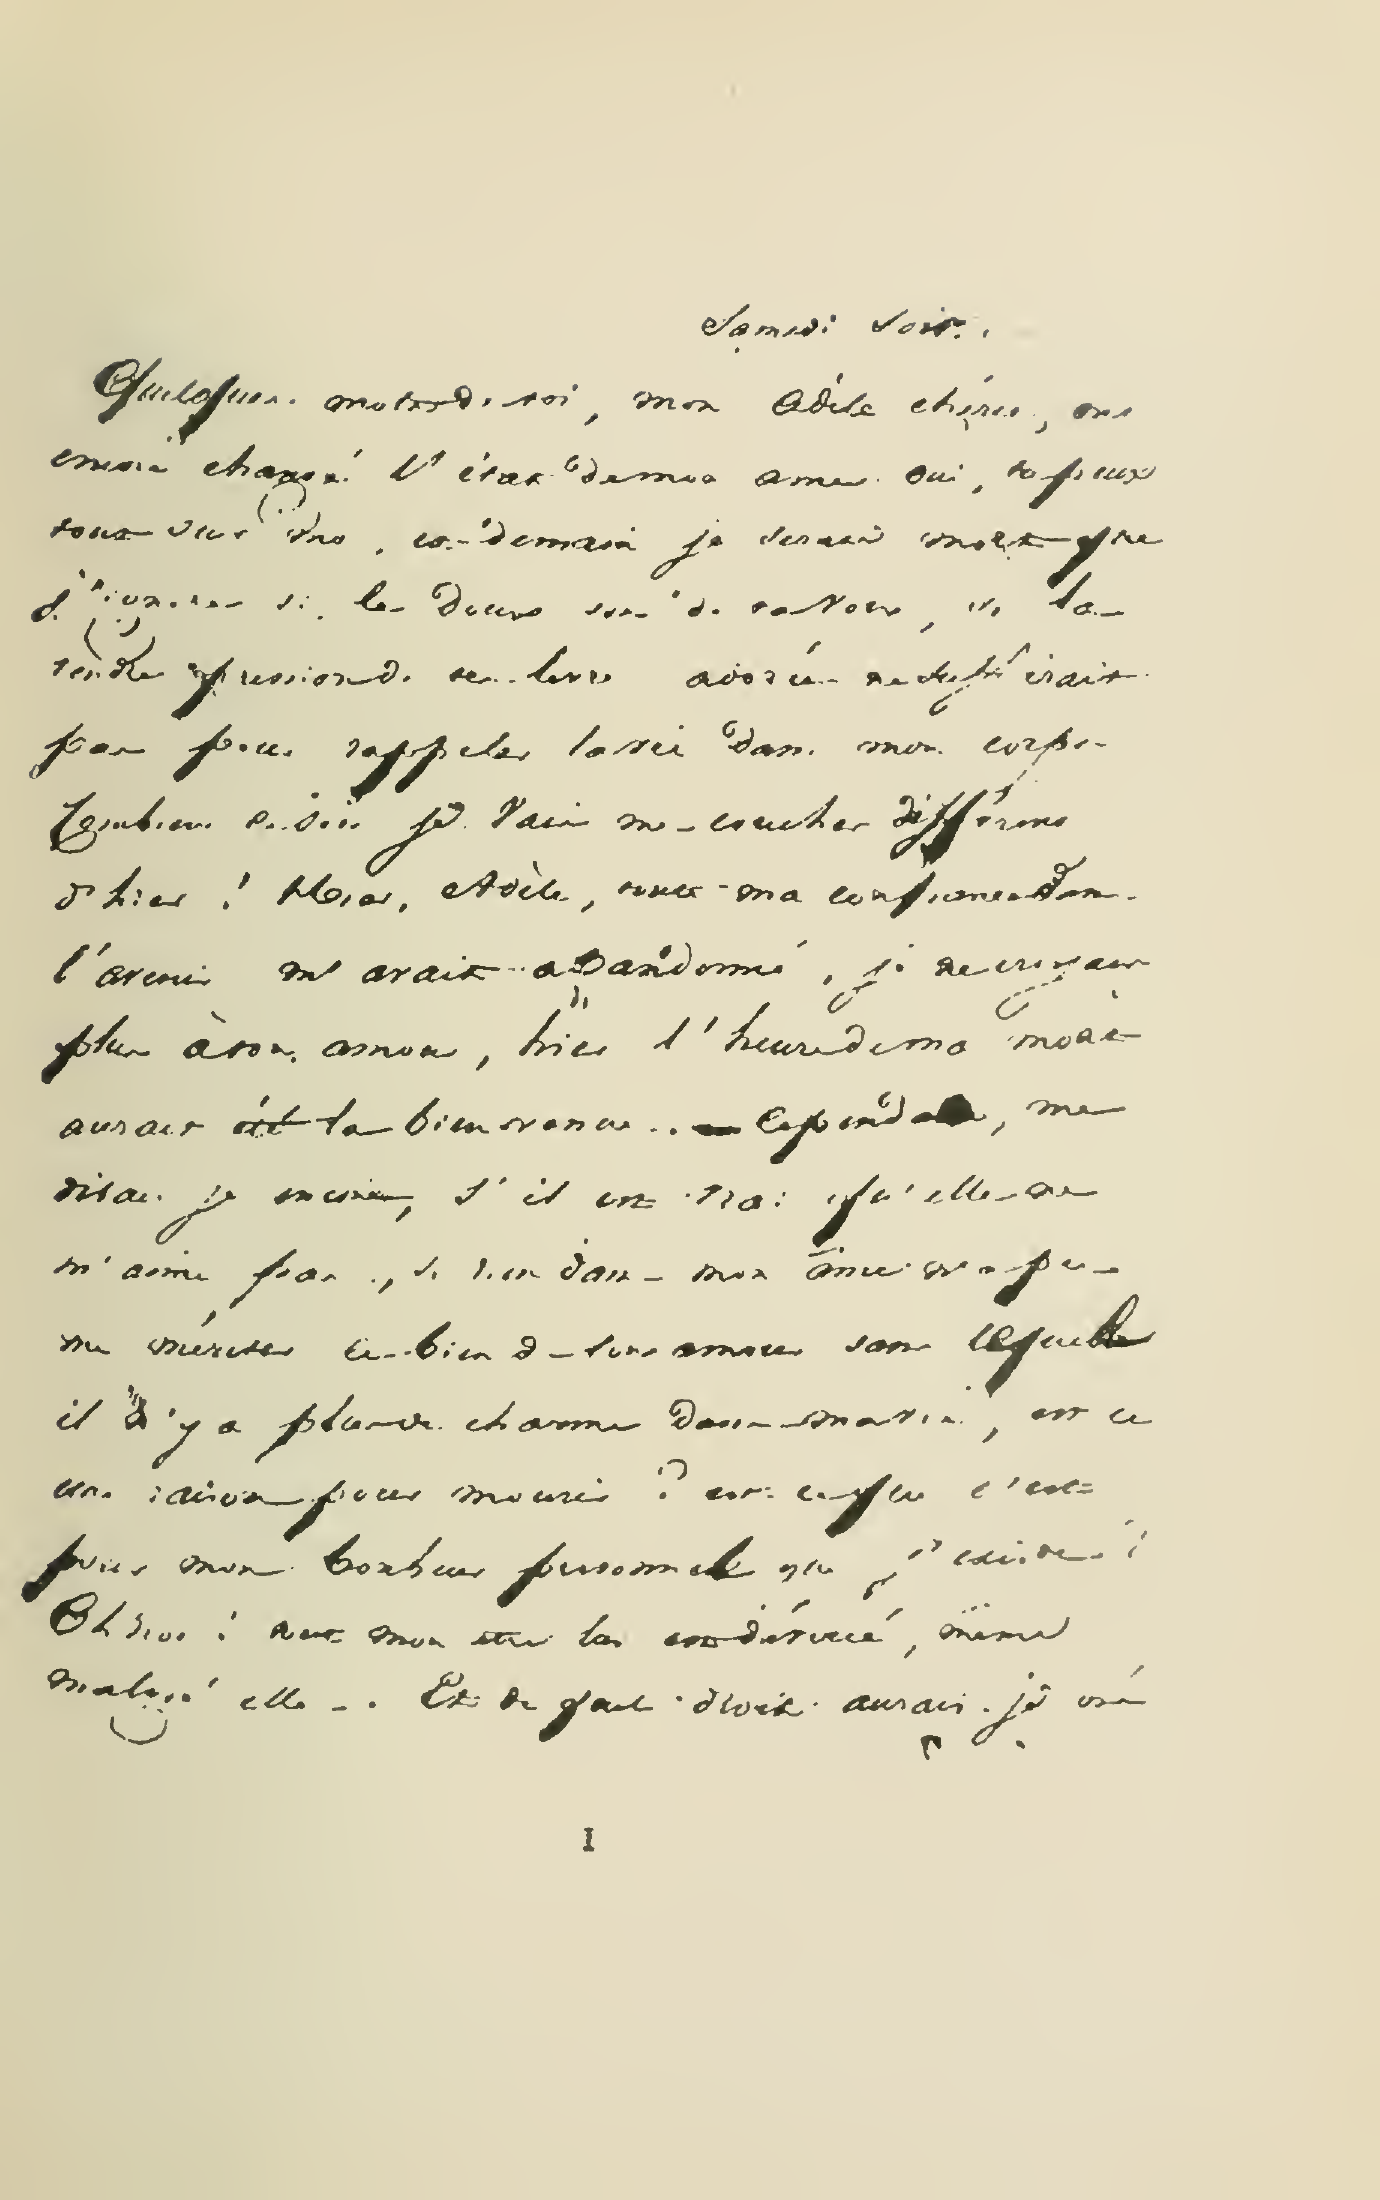 Samedi soir.
Quelques mots de toi, mon Adèle chérie, ont
encore changé l'état de mon âme. Oui, tu peux
tout sur moi, et demain je serais mort que
j'ignore si le doux son de ta voix, si la
tendre pression de tes lèvres adorées ne suffirait
pas pour rappeler la vie dans mon corps.
Combien ce soir je vais me coucher différent
d'hier ! Hier, Adèle, toute ma confiance dans
l'avenir m'avait abandonné, je ne croyais
plus à ton amour, hier l'heure de ma mort
aurait été la bienvenue.. — Cependant, me
disais-je encore, s'il est vrai qu'elle ne
m'aime pas, si rien dans mon âme n'a pu
me mériter ce bien de son amour sans lequel
il n'y a plus de charme dans ma vie, est-ce
une raison pour mourir ? est-ce que c'est
pour mon bonheur personnel que j'existe ?
Oh non ! tout mon être lui est dévoué, même
malgré elle. Et de quel droit aurais-je osé
I